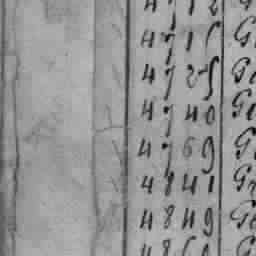 4712
4715 G
4725 Ge
4740 Ge
4769 G
4841 Gr
4849 Ge
4860 G